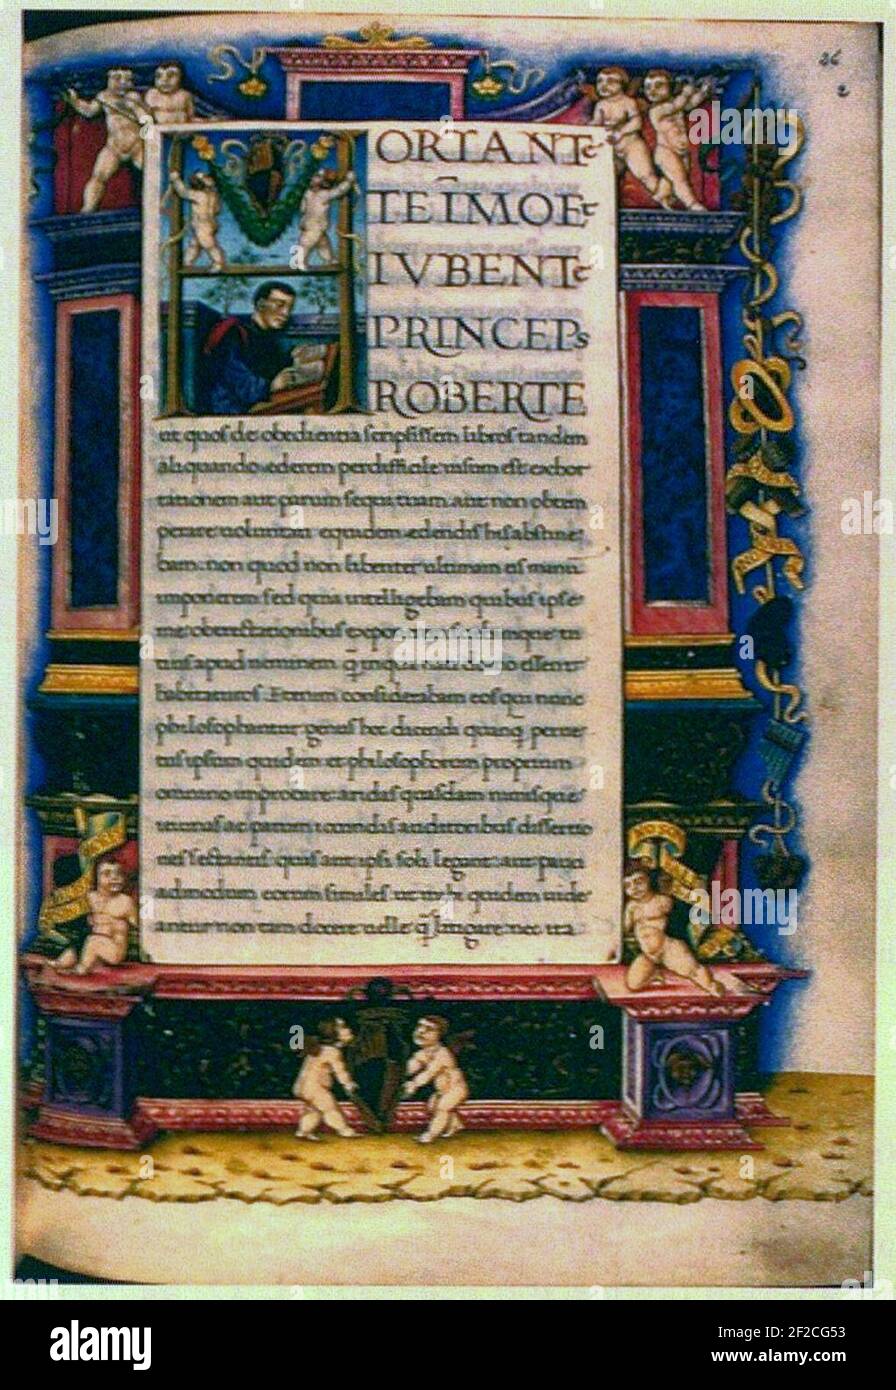 26
2
HORTANTE
TE ĪMO ET
IVBENTE
PRINCEPS
ROBERTE
ut quos de obedientia scripsissem libros tandem
aliquando ederem perdifficile uisum est exhor
tationem aut parum sequi tuam aut non obtem
perare uoluntati equidem ædendis his abstine
bam: non quod non libenter ultimam eis manū
imponerem sed quia intelligebam quibus ipse
me obtrectationibus exponerem suis
apud neminem
habitaturos. Etenim considerabam eos qui nunc
philosophantur genus hoc dicendi quanq̃ perue
tus ipsum quidem et philosophorum proprium
omnino improbare: aridis quasdam nimisque
ieiunas ac parum iocundis auditoribus dissertio
nes sectantis: quas aut ipsi soli legant: aut pauci
admodum eorum similes ut mihi quidem uide
antur non tam docere uelle q̃ litigare: nec ita
alamy
Image ID: 2F2CG53
www.alamy.com